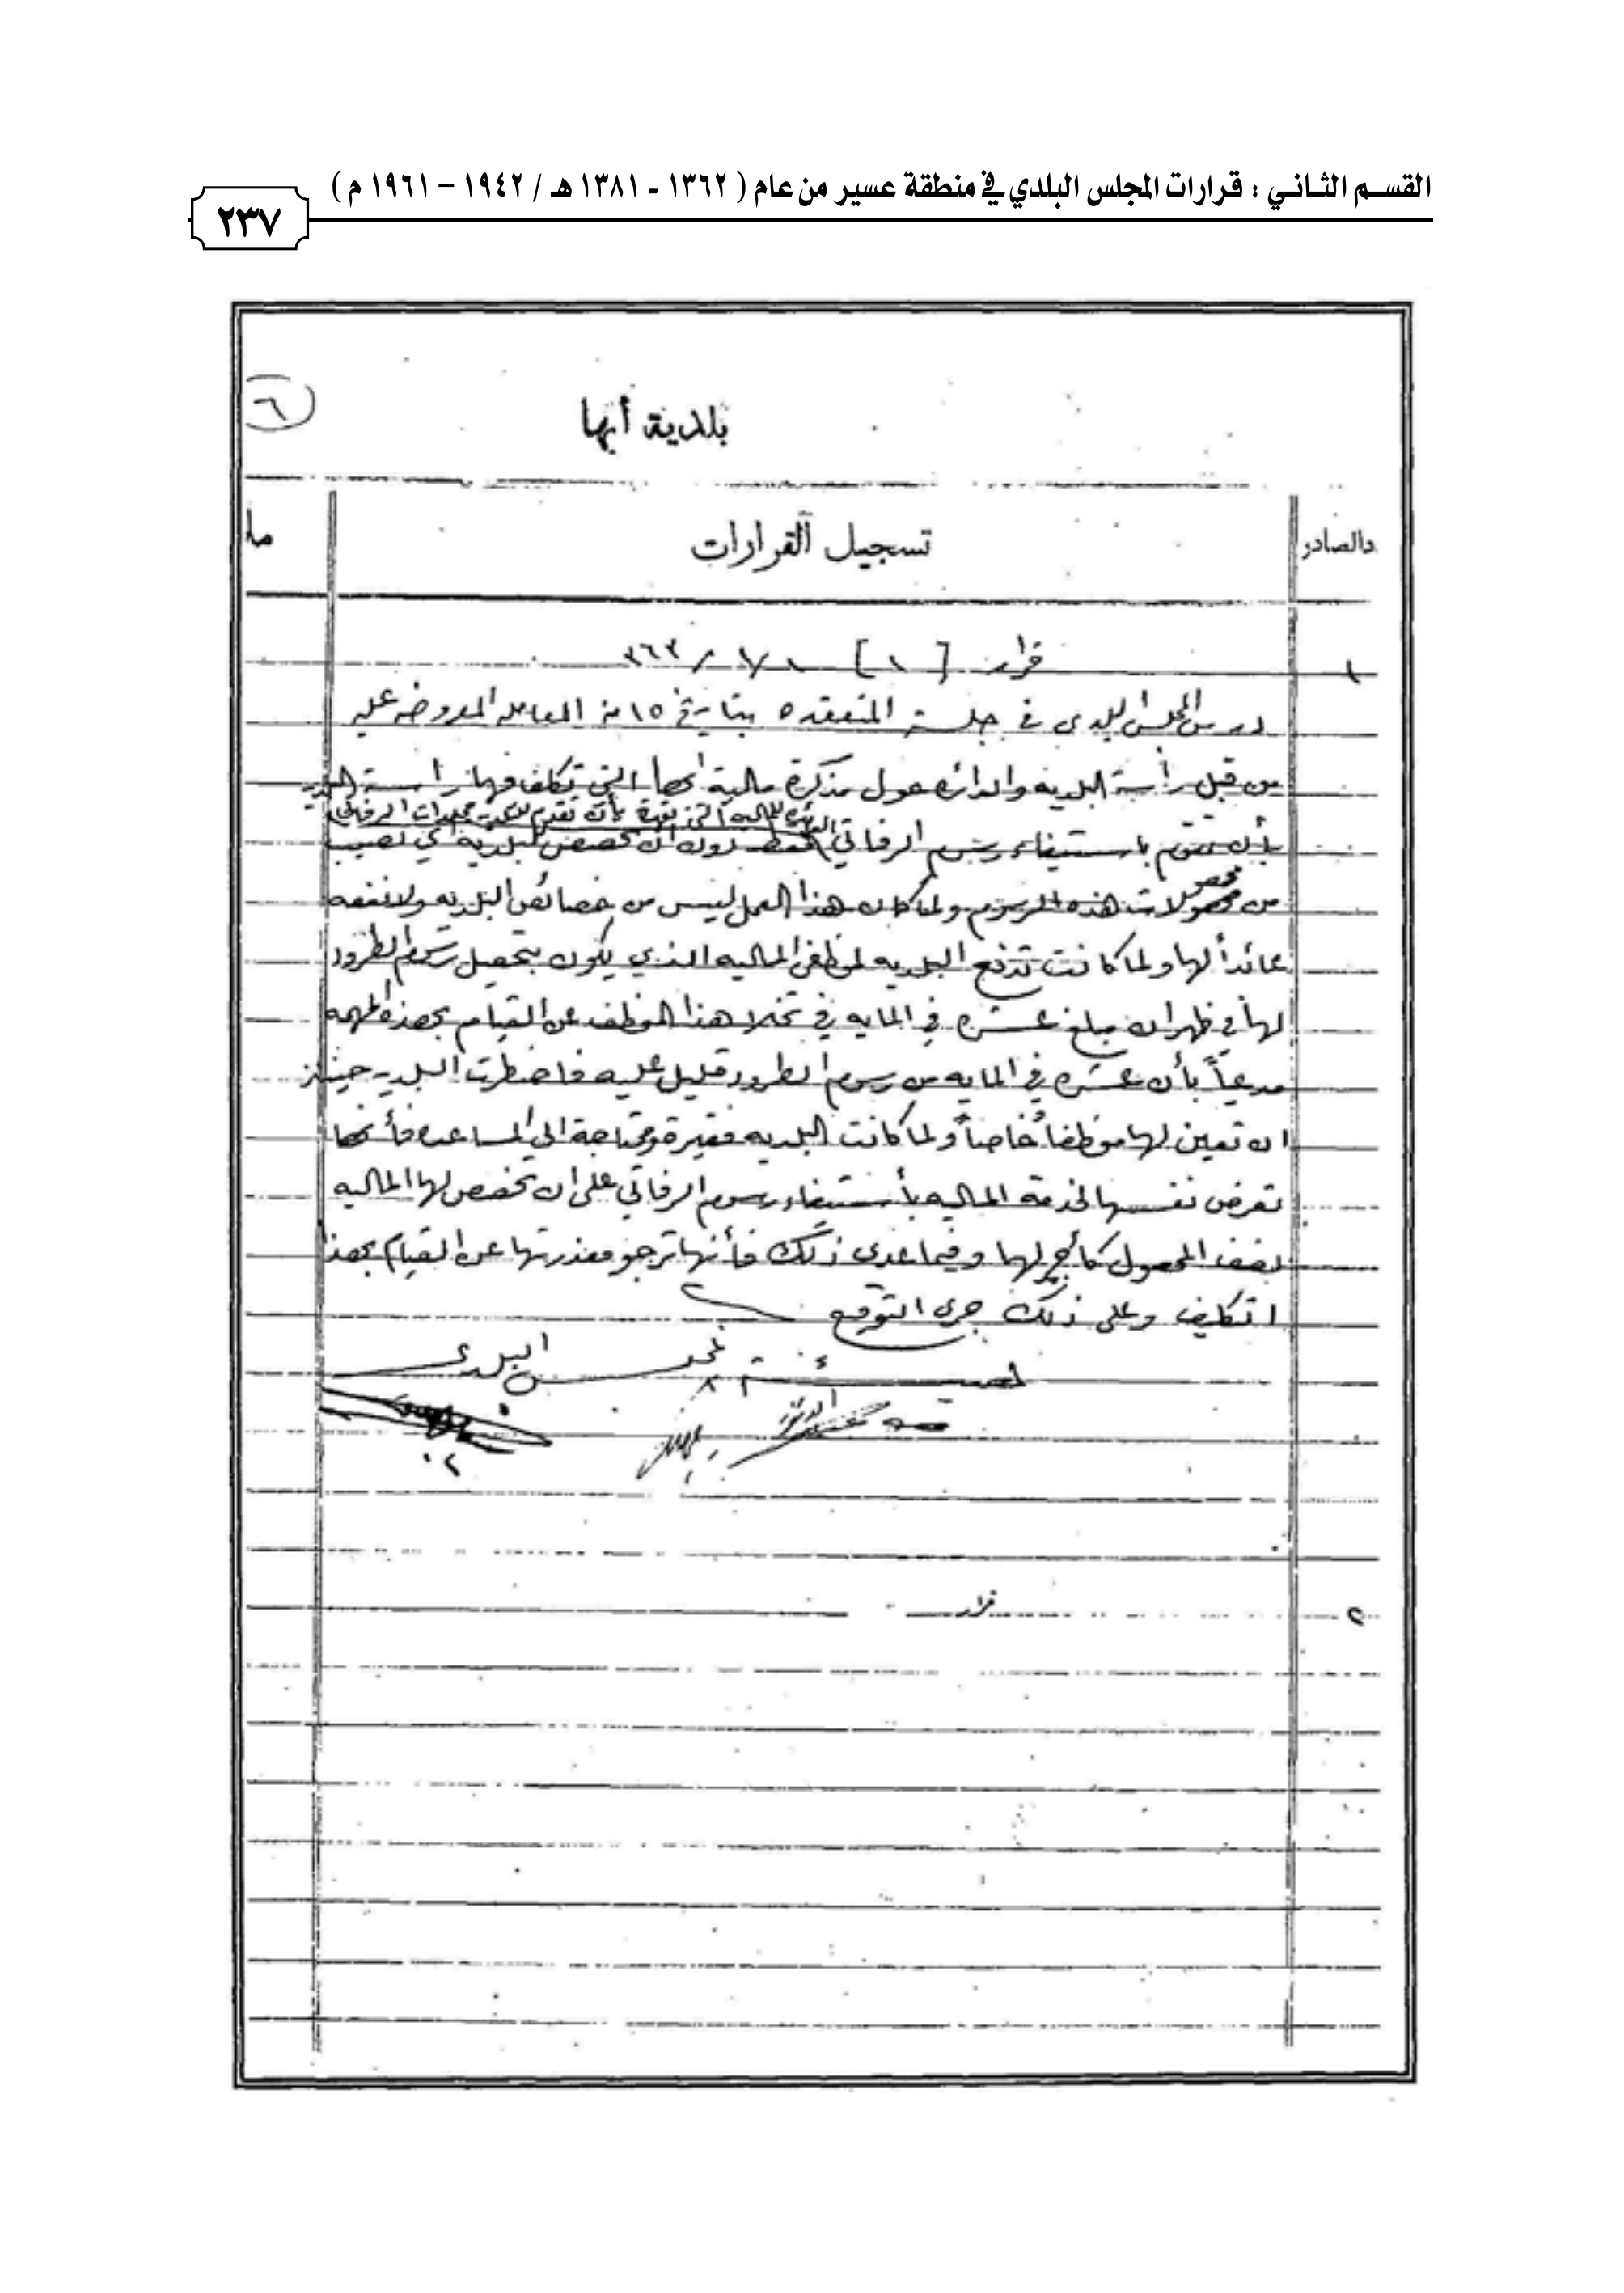 القسم الثاني : قرارات المجلس البلدي في منطقة عسير من عام ( ١٣٦٢ - ١٣٨١ هـ / ١٩٤٢ – ١٩٦١ م )
٢٣٧
٦
بلدية أبها
دالصادر تسجيل القرارات ما
١ قرار [ ١ ] ٣٦٣
درس المجلس البلدي في جلسته المنعقده بتاريخ ١٥ منه المعامله المعروضه عليه
من قبل رأسة البلديه والدائره حول مذكرة مالية ابها التي تكلف فيها رأسة البلديه
بأن تقوم باستيفاء رسوم الرفاتي دون ان تخصص للبلدية اي نصيب
من محصولات هذه الرسوم ولما كان هذا العمل ليس من خصائص البلديه ولا نفعه
عائداً لها ولما كانت تدفع البلديه لموظفي الماليه الذي يكون بتحصيل رسوم الطرود
لها في ظهران مبلغ عشره في المايه في تخلا هذا الموظف عن القيام بهذه المهمه
مدعياً بأن عشره في المايه من رسوم الطرود قليل عليه فاضطرت البلديه حينئذ
ان تعين لها موظفاً خاصاً ولما كانت البلديه فقيرة ومحتاجة الى المساعده فأنها
تعرض نفسها لخدمة الماليه بأستيفاء رسوم الرفاتي على ان تخصص لها الماليه
نصف المحصول كأجر لها وفيما عدى ذلك فأنها ترجو معذرتها عن القيام بهذا
التكليف وعلى ذلك جرى التوقيع
هيئة المجلس البلدي
٢ قرار